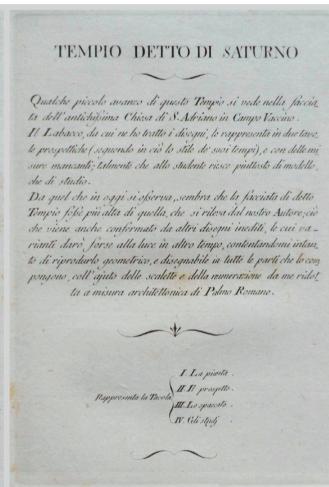 TEMPIO DETTO DI SATURNO
Qualche piccolo avanzo di questo Tempio si vede nella faccia-
ta dell'antichissima Chiesa di S. Adriano in Campo Vaccino.
Il Labacco, da cui ne ho tratto i disegni, lo rappresenta in due tavo-
le prospettiche (seguendo in ciò lo stile de' suoi tempi), e con delle mi-
sure mancanti; talmente che allo studente riesce piuttosto di modello,
che di studio.
Da quel che in oggi si osserva, sembra che la facciata di detto
Tempio fosse più alta di quella, che si rileva dal nostro Autore; ciò
che viene anche confermato da altri disegni inediti, le cui va-
rianti darò forse alla luce in altro tempo, contentandomi intan-
to di riprodurlo geometrico, e disegnabile in tutte le parti che lo com-
pongono, coll'ajuto delle scalette e della numerazione da me ridot-
ta a misura architettonica di Palmo Romano.
Rappresenta la Tavola
I. La pianta.
II. Il prospetto.
III. Lo spaccato.
IV. Gli